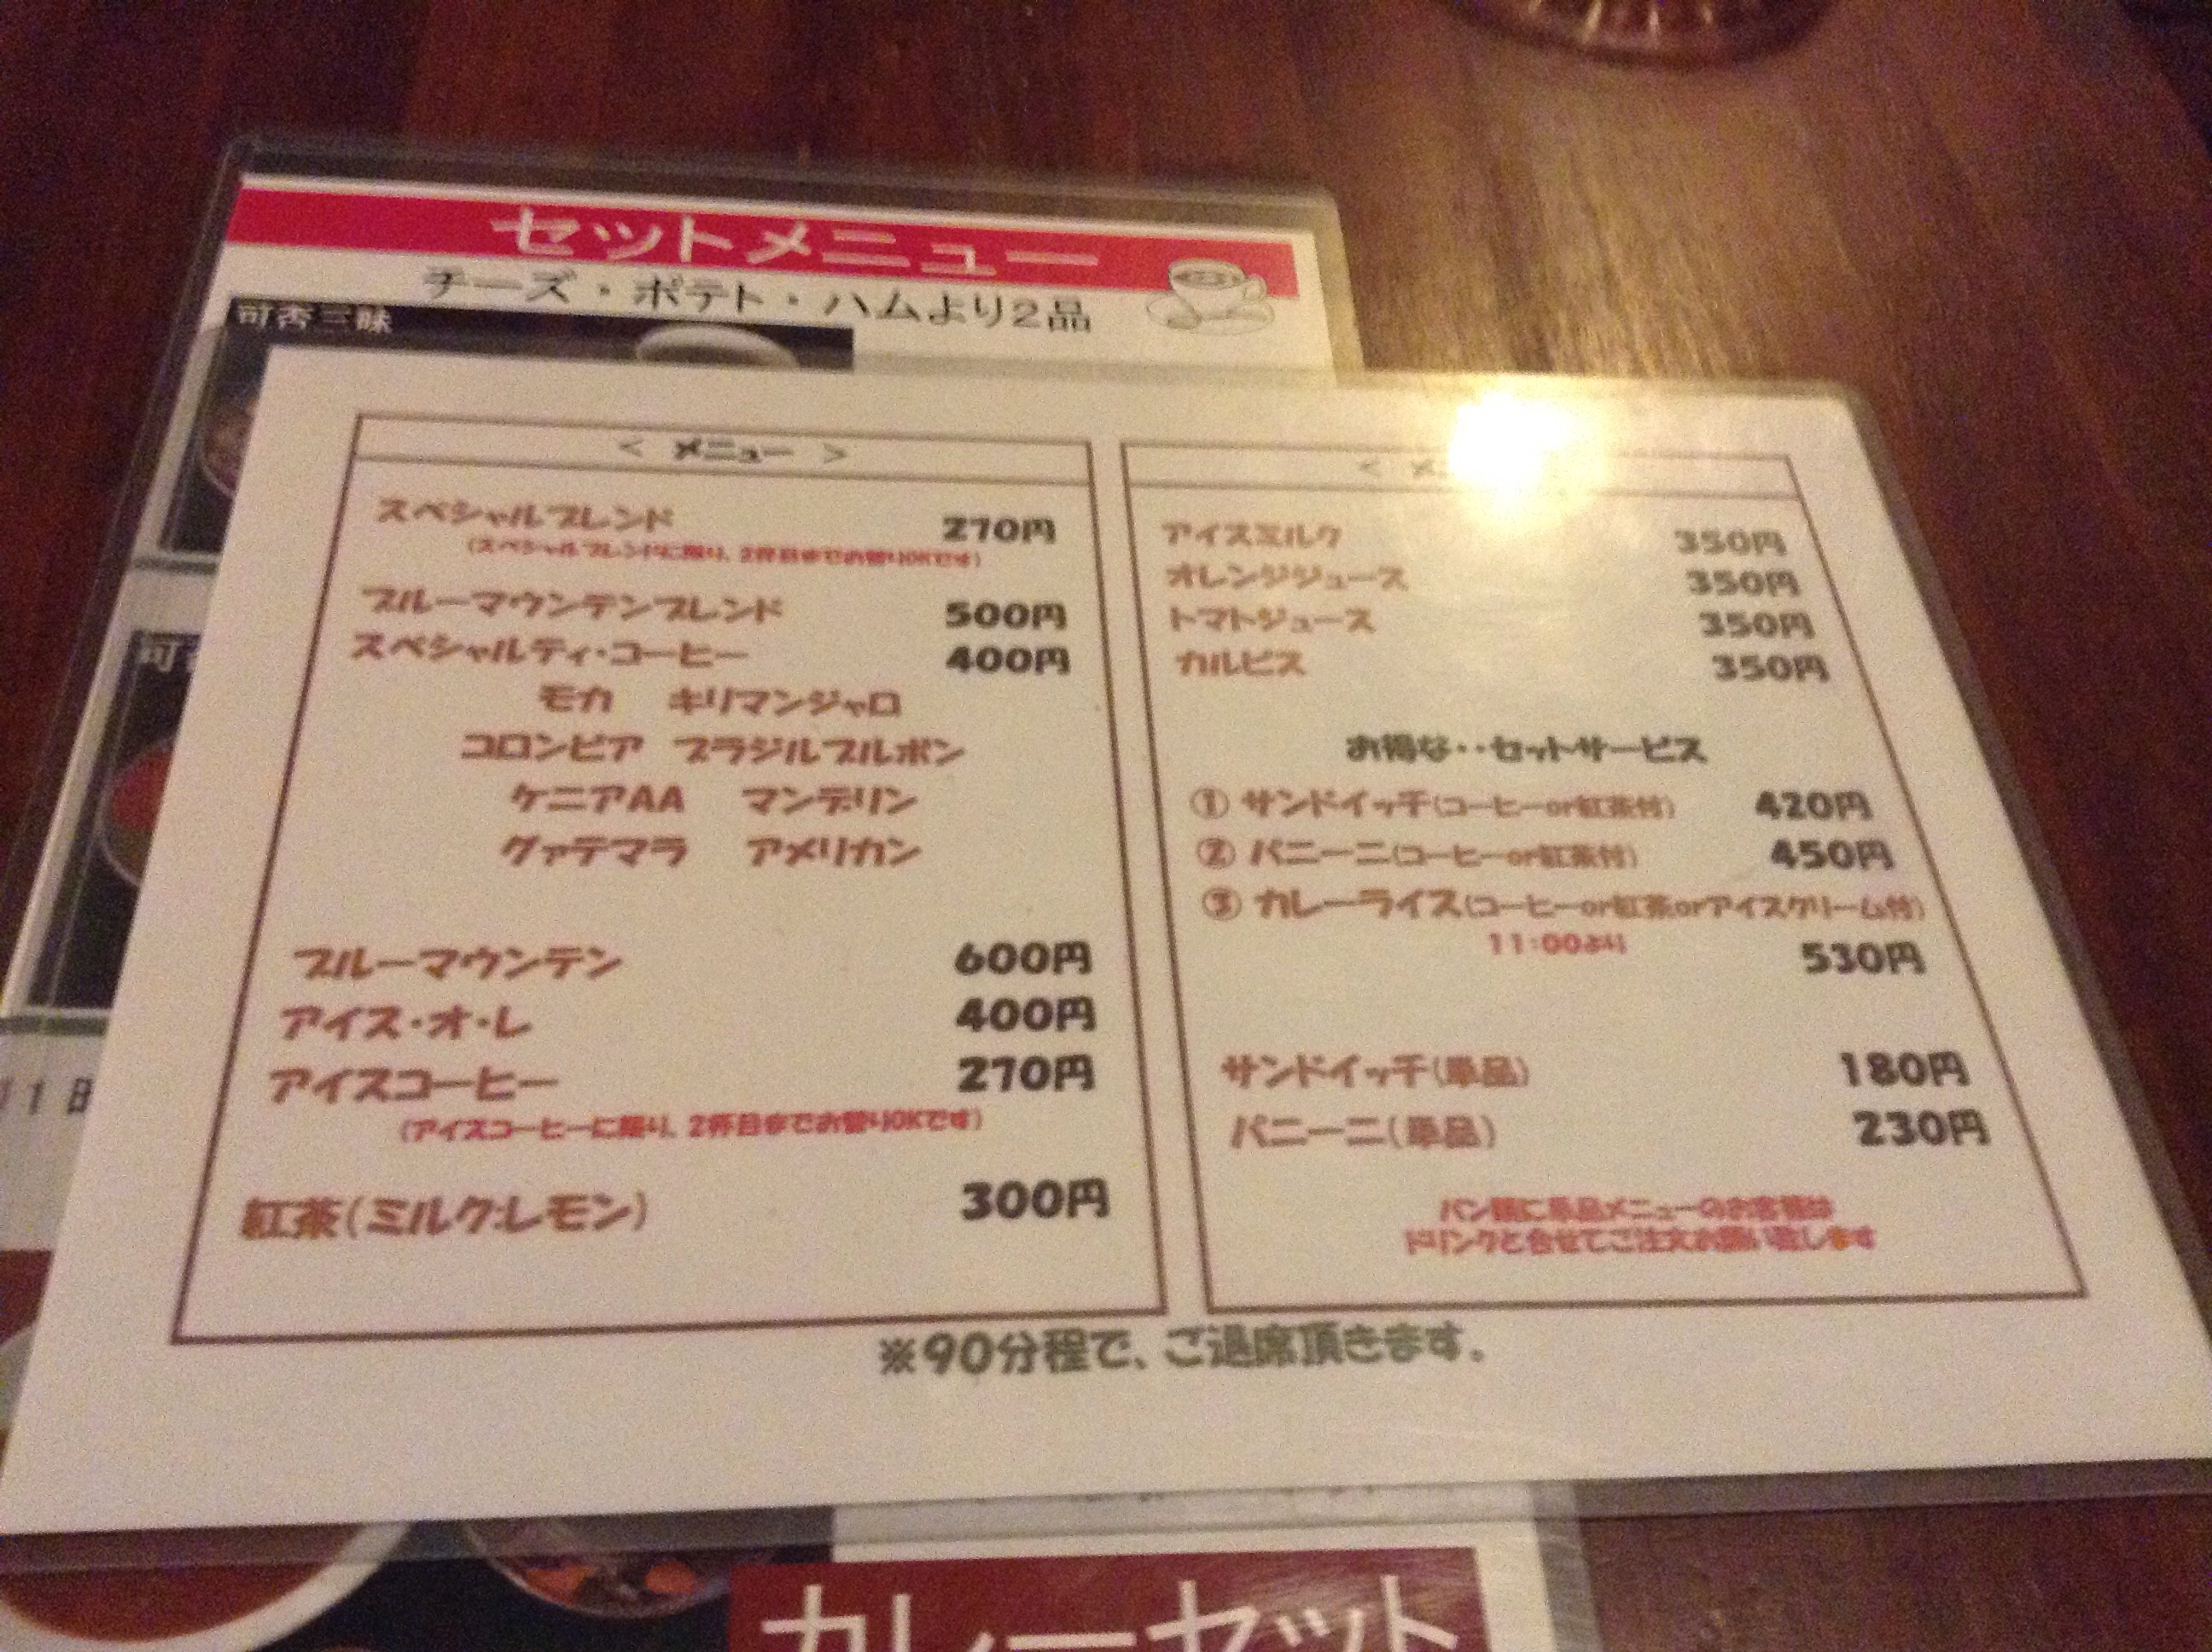 セットメニュー
チーズ・ポテト・ハムより2品
可否三昧
< メニュー >
スペシャルブレンド 270円
(スペシャルブレンドに限り、2杯目までお替りOKです)
ブルーマウンテンブレンド 500円
スペシャルティ・コーヒー 400円
モカ キリマンジャロ
コロンビア ブラジルブルボン
ケニアAA マンデリン
グァテマラ アメリカン
ブルーマウンテン 600円
アイス・オ・レ 400円
アイスコーヒー 270円
(アイスコーヒーに限り、2杯目までお替りOKです)
紅茶(ミルク:レモン) 300円
< メ
アイスミルク 350円
オレンジジュース 350円
トマトジュース 350円
カルピス 350円
お得な・・セットサービス
① サンドイッチ(コーヒーor紅茶付) 420円
② パニーニ(コーヒーor紅茶付) 450円
③ カレーライス(コーヒーor紅茶orアイスクリーム付)
11:00より 530円
サンドイッチ(単品) 180円
パニーニ(単品) 230円
パン類に単品メニューのお客様は
ドリンクと合せてご注文お願い致します
※90分程で、ご退席頂きます。
カレーセット